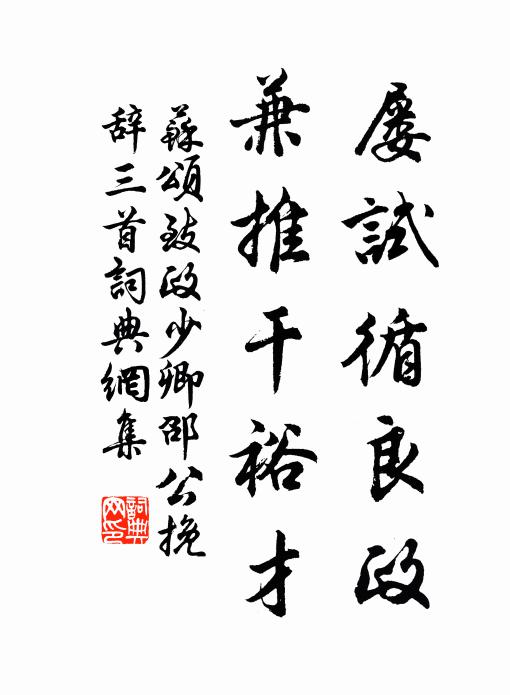 屡試循良政
兼推干裕才
蘇頌致政少卿邵公挽
辞三首詞典網集
詞典
网印